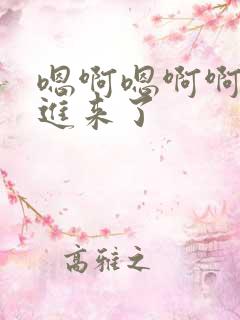 嗯啊嗯啊啊
進来了
高雅之